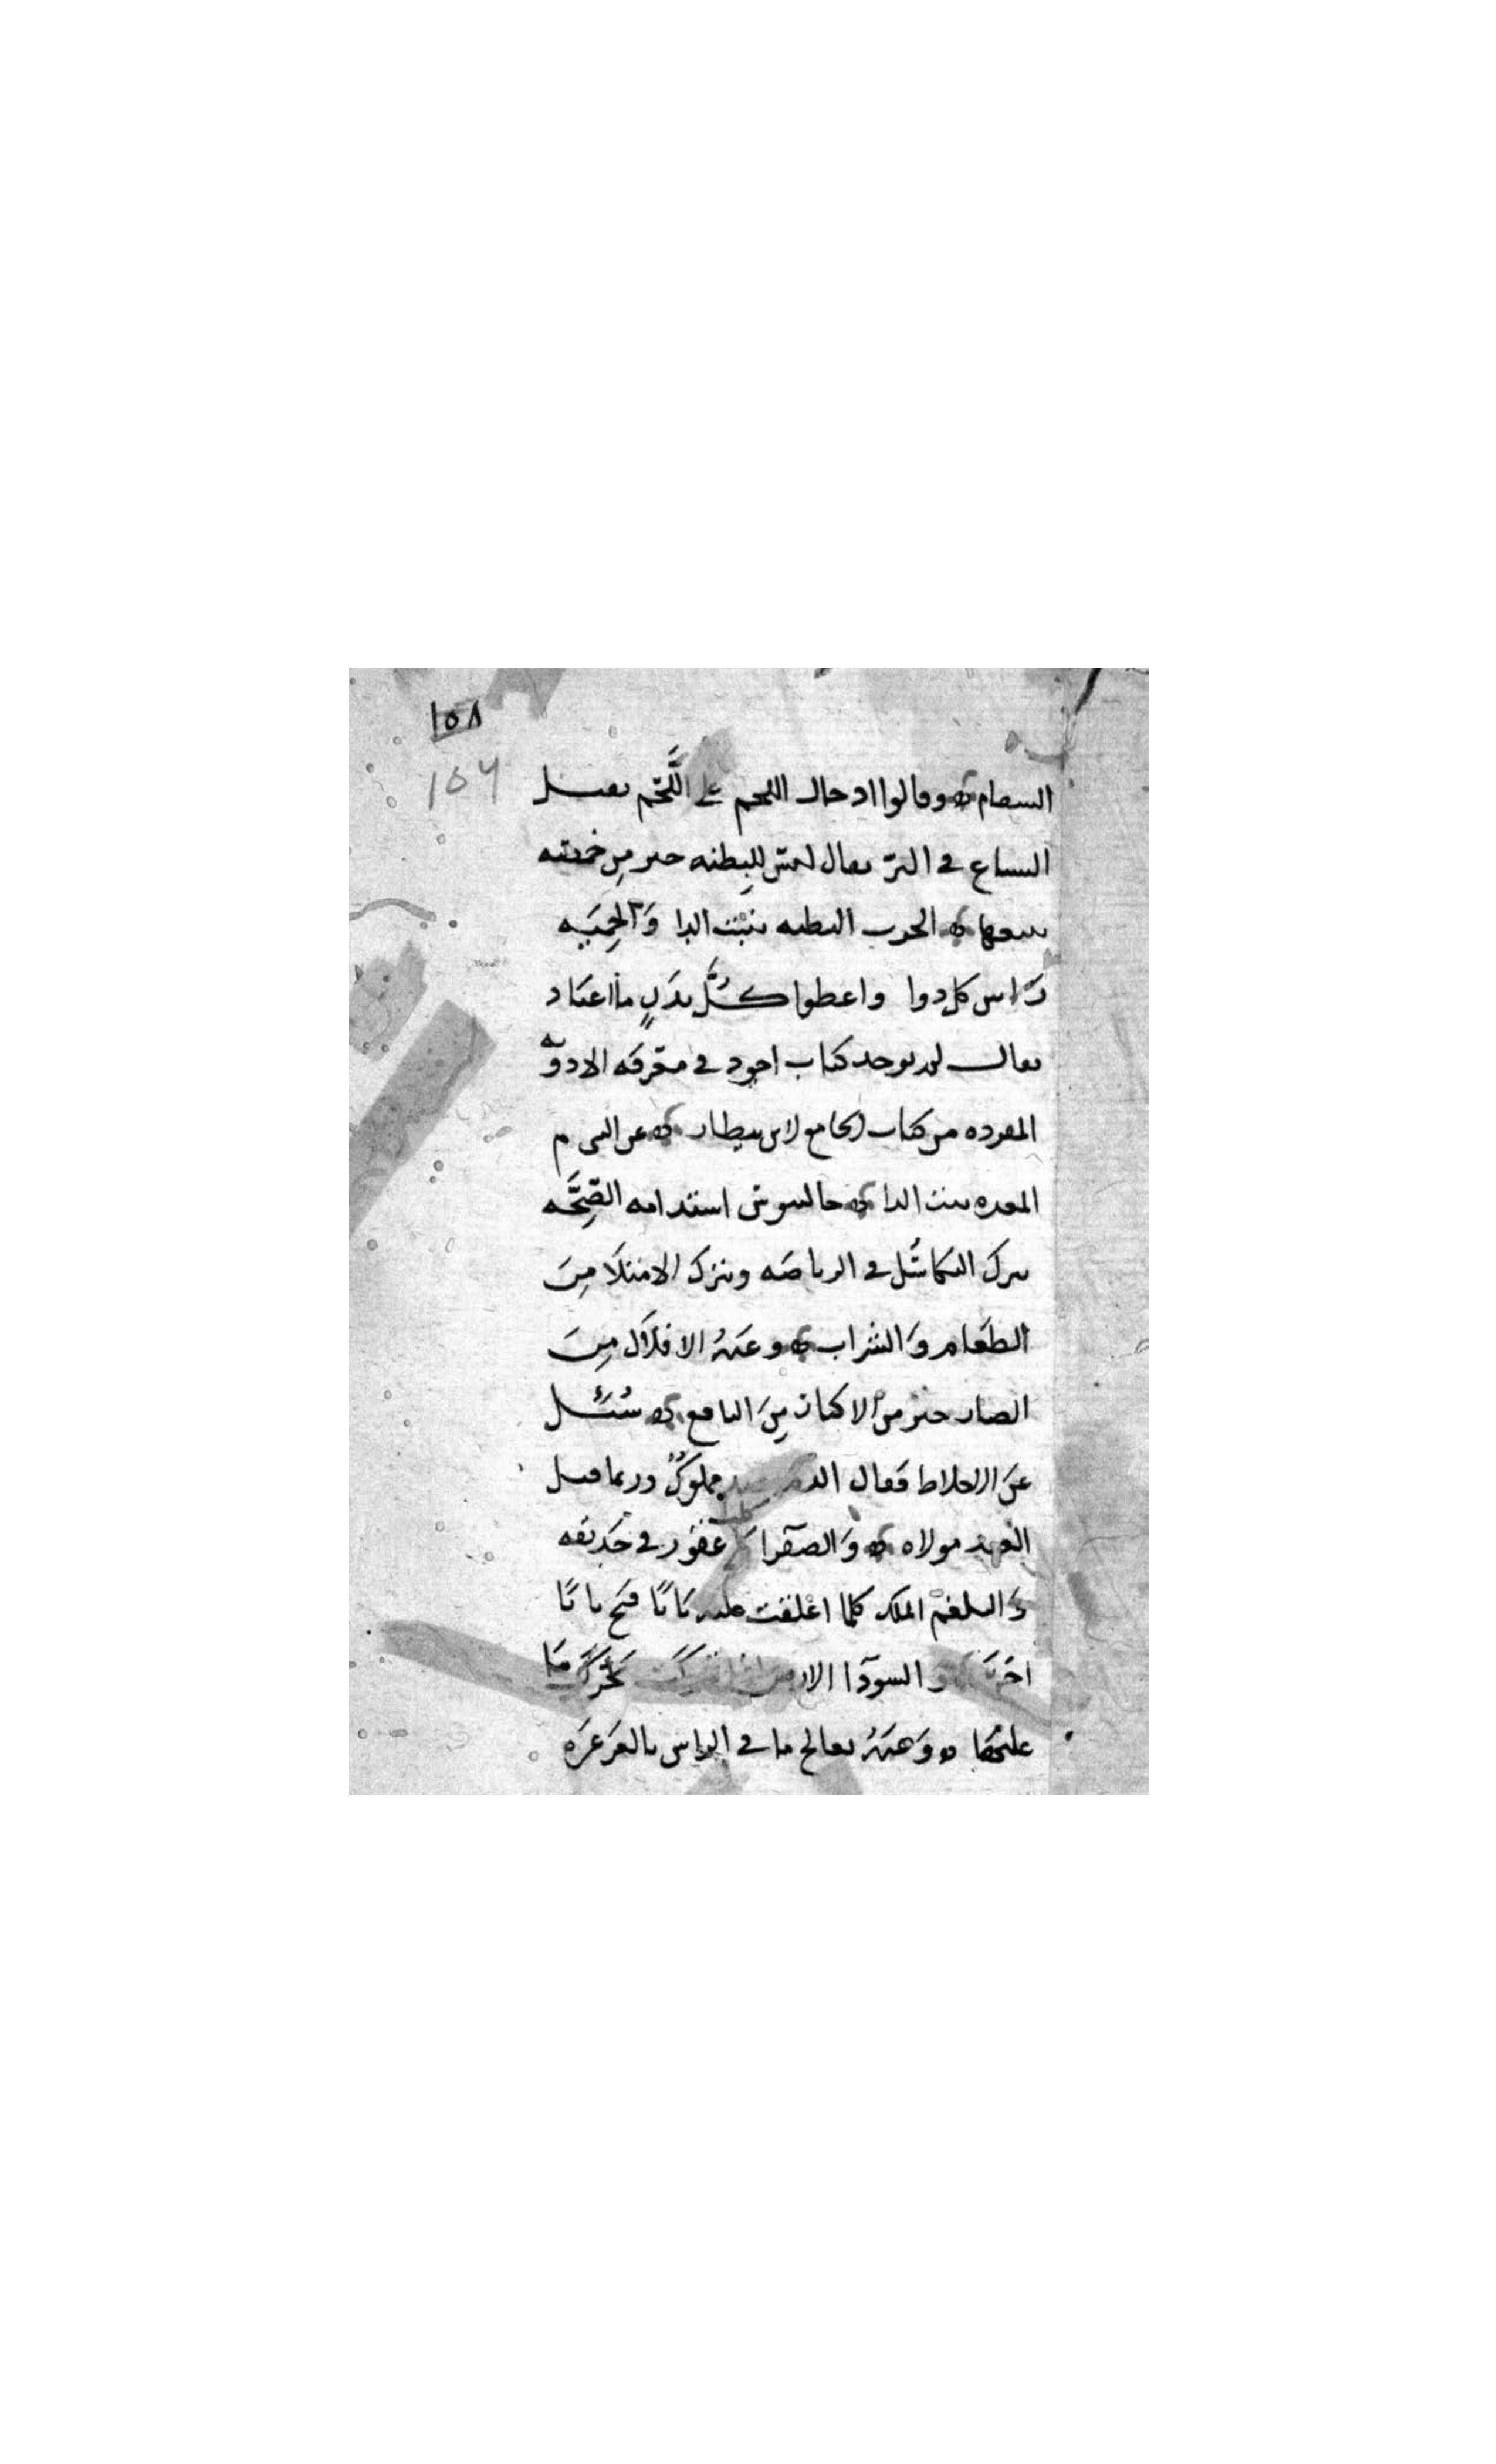 ١٥٨
154
السقام وقالوا ادخال اللحم على اللَّحم يقتل
السباع في البرّ يقال ليس للبِطنه خير مِن خمصه
تتبعها الحرب البطنه تنبت الدا وَالحِميَه
رَاس كل دوا واعطوا كُلَّ بدَنٍ ما اعتاد
يقال لم يوجد كتاب اجود في معَرفه الادويه
المفرده من كتاب الجامع لابن بيطار عن النبى م
المعده بيت الدا جالينوس استدامه الصِّحَّه
بترك التكاسُل في الرياضَه وبترك الامتلَا مِنَ
الطعَام وَالشراب وعَنهُ الاقلاَل مِنَ
الضار خير من الاكثار مِنَ النافع سُئِل
عَن الاخلاط فقال الدم مملوكٌ وربما قتل
العبد مولاه وَالصَفرا كلب عقوُر في حَديقه
وَالبلغم الملك كلما اغلقت عليه بَابًا فتَح بابًا
وَالسودَا الارض اذا تحركت تحَرَّكَ مَا
عليهَا وَعَنهُ يعالج ما في الراس بالغَرغَرَه